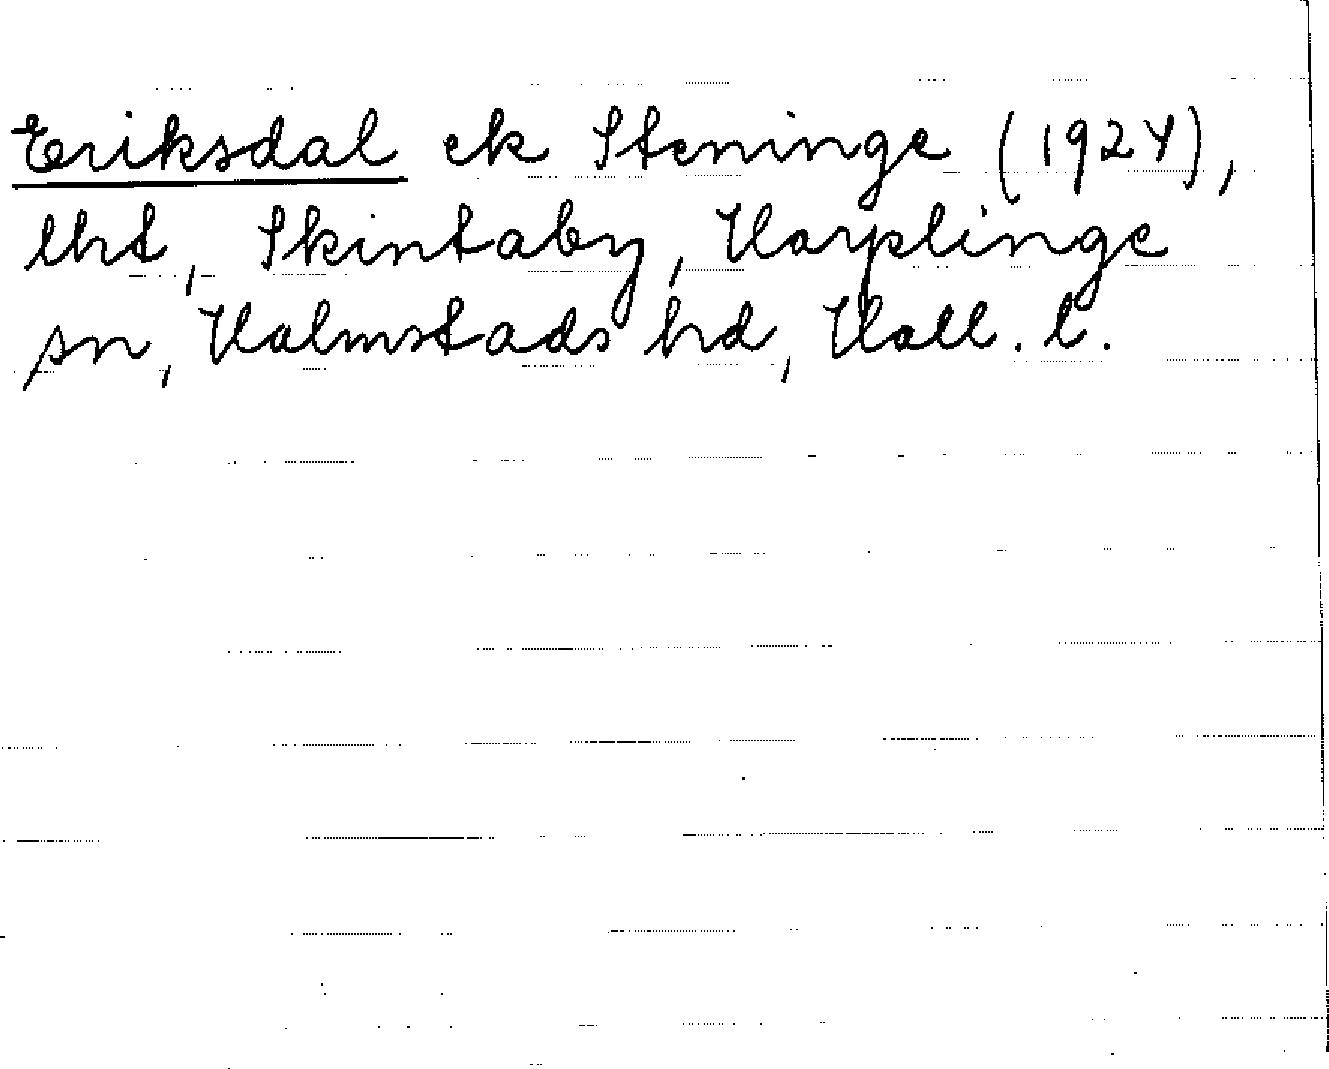 Eriksdal ek Steninge (1924),
lht, Skintaby, Harplinge
sn, Halmstads hd, Hall. l.